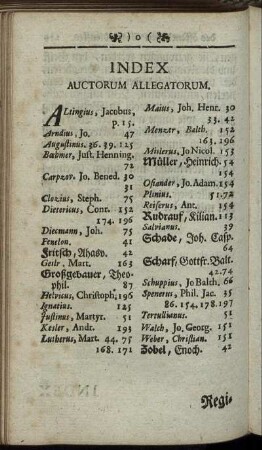 ) o (
INDEX
AUCTORUM ALLEGATORUM.
ALtingius, Jacobus,
p. 15.
Arndius, Jo. 47
Augustinus. 36. 39. 125
Bœhmer, Just. Henning,
72
Carpzov. Jo. Bened. 30
31
Cloxius, Steph. 75
Dieterius, Conr. 152
174. 196
Diecmann, Joh. 75
Fenelon. 41
Fritsch, Ahasv. 42
Geilr, Mart. 163
Großgebauer, Theo-
phil. 87
Helvicus, Christoph, 196
Ignatius. 125
Justinus, Martyr. 51
Kesler, Andr. 193
Lutherus, Mart. 44. 75
168. 171
Maius, Joh. Henr. 30
33. 42
Menzer, Balth. 152
163. 196
Mislerus, Jo Nicol. 153
Müller, Heinrich. 54
154
Osiander, Jo. Adam. 154
Plinius. 51. 72
Reiserus, Ant. 154
Rudrauf, Kilian. 113
Salvianus. 39
Schade, Joh. Casp.
64
Scharf, Gottfr. Balt.
42. 74
Schuppius, Jo Balth. 66
Spenerus, Phil. Jac. 35
86. 154. 178. 197
Tertullianus. 51
Walch, Jo. Georg. 151
Weber, Christian. 151
Zobel, Enoch. 42
Regi-